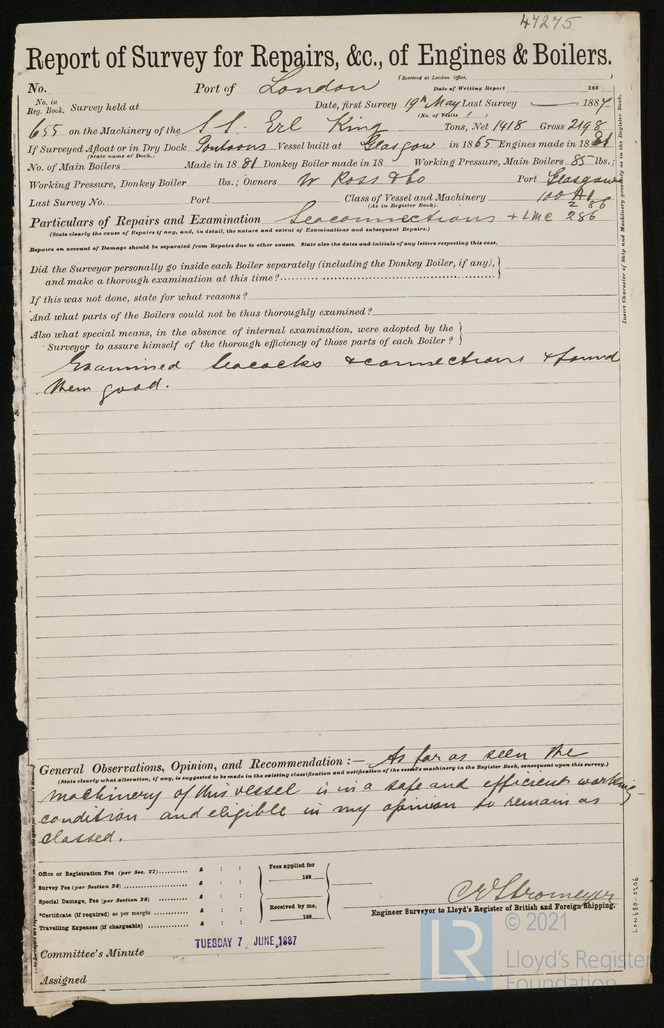 47275
Report of Survey for Repairs, &c., of Engines & Boilers.
(Received at London Office, )
No. Port of London Date of Writing Report 188
No. in Reg. Book. Survey held at Date, first Survey 19th May Last Survey 1887
(No. of Visits 1 )
655 on the Machinery of the S.S. Erl King Tons, Net 1418 Gross 2198
If Surveyed Afloat or in Dry Dock Pontoons Vessel built at Glasgow in 1865 Engines made in 18
(State name of Dock.)
No. of Main Boilers Made in 1881 Donkey Boiler made in 18 Working Pressure, Main Boilers 85 lbs.;
Working Pressure, Donkey Boiler lbs.; Owners W Ross & Co Port Glasgow
Last Survey No. Port Class of Vessel and Machinery 100 A1
(As in Register Book). 2 86
Particulars of Repairs and Examination Seaconnections + LMC 286
(State clearly the cause of Repairs if any, and, in detail, the nature and extent of Examinations and subsequent Repairs.)
Repairs on account of Damage should be separated from Repairs due to other causes. State also the dates and initials of any letters respecting this case.
Did the Surveyor personally go inside each Boiler separately (including the Donkey Boiler, if any),
and make a thorough examination at this time?
If this was not done, state for what reasons?
And what parts of the Boilers could not be thus thoroughly examined?
Also what special means, in the absence of internal examination, were adopted by the
Surveyor to assure himself of the thorough efficiency of those parts of each Boiler?
Examined Seacocks & connections & found
them good.
Insert Character of Ship and Machinery precisely as in the Register Book.
General Observations, Opinion, and Recommendation :— As far as seen the
(State clearly what alteration, if any, is suggested to be made in the existing classification and notification of the vessel's machinery in the Register Book, consequent upon this survey.)
machinery of this vessel is in a safe and efficient working
condition and eligible in my opinion to remain as
classed.
Office or Registration Fee (per Sec. 27) £ : :
Survey Fee (per Section 28) £ : :
Special Damage, Fee (per Section 28) £ : :
*Certificate (if required) as per margin £ : :
Travelling Expenses (if chargeable) £ : :
Fees applied for
188
Received by me,
188
C E Stromeyer
Engineer Surveyor to Lloyd's Register of British and Foreign Shipping.
Committee's Minute TUESDAY 7 JUNE, 1887
Assigned
LON680-0206
© 2021
LR
Lloyd's Register
Foundation